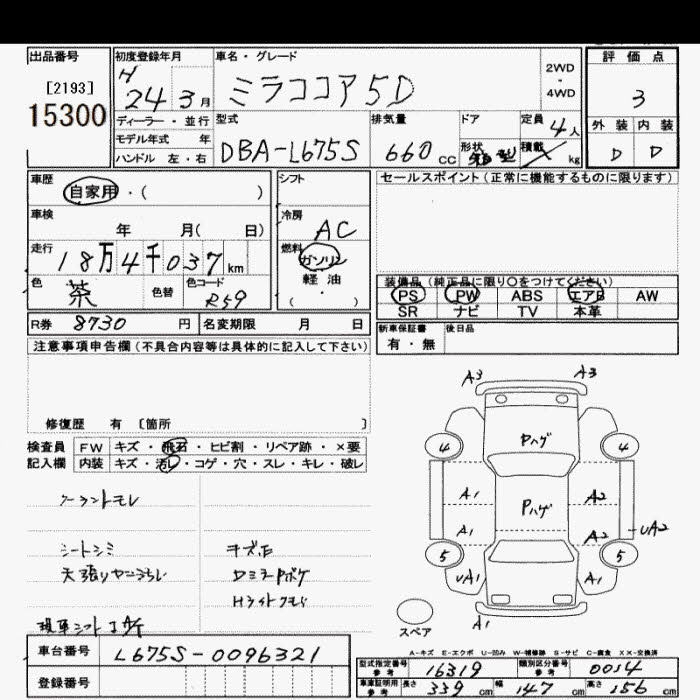 出品番号
[2193]
15300
初度登録年月
H 24 3月
ディーラー・並行
モデル年式 年
ハンドル 左・右
車名・グレード
ミラココア 5D
2WD
・
4WD
型式
DBA-L675S
排気量
660 CC
ドア
形状
定員 4人
積載 kg
評価点
3
外装 内装
D D
車歴
自家用・( )
車検
年 月( 日)
走行
18万4千037km
色
茶
色替
色コード
R59
シフト
冷房
AC
燃料
ガソリン
軽油
( ・ )
セールスポイント(正常に機能するものに限ります)
装備品(純正品に限り○をつけてください)
PS PW ABS エアB AW
SR ナビ TV 本革
R券 8730 円 名変期限 月 日
新車保証書
有・無
後日品
注意事項申告欄(不具合内容等は具体的に記入して下さい)
修復歴 有 〔箇所 〕
検査員
記入欄
FW キズ・飛石・ヒビ割・リペア跡・×要
内装 キズ・汚レ・コゲ・穴・スレ・キレ・破レ
クーラントモレ
シートシミ
キズ凹
DミラーPボケ
Hライトクモリ
車台番号 L675S-0096321
登録番号
A3 A3
Pハゲ
4 4
A1 Pハゲ A2
A1 A2 UA2
5 5
UA1 A1
A1
スペア
A-キズ E-エクボ U-凹み W-補修跡 S-サビ C-腐食 XX-交換済
型式指定番号
参考
16319
類別区分番号
参考
0054
車庫証明用
参考
長さ 339 cm 幅 147 cm 高さ 156 cm